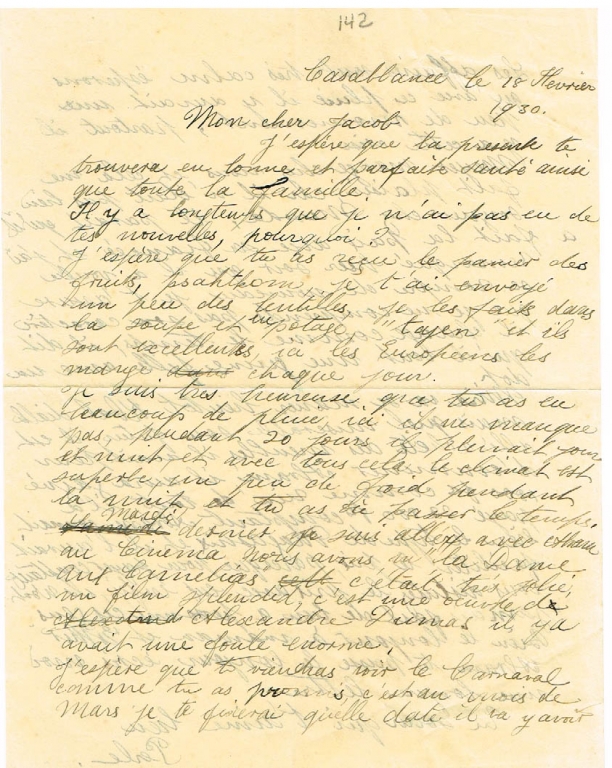 142
Casablanca le 18 Fevrier
1930.
Mon cher Jacob
J'espère que la présente te
trouvera en bonne et parfaite santé ainsi
que toute la famille.
Il y a longtemps que je n'ai pas eu de
tes nouvelles, pourquoi?
J'espère que tu as reçu le panier des
fruits, je t'ai envoyé
un peu des lentilles, je les fais dans
la soupe et en potage, "tajen" et ils
sont excellents, ici les Européens les
mange dans chaque jour.
Je suis très heureuse que tu as eu
beaucoup de pluie ici il ne manque
pas, pendant 20 jours il pleuvait jour
et nuit, et avec tous cela le climat est
superbe un peu de froid pendant
la nuit et tu as su passer le temps.
Mardi
Samedi dernier je suis allez avec
au Cinema nous avons vu "la Dame
aux Camelias c'était très jolie,
un film splendid, c'est une oeuvre de
Alexandre Dumas il y a
avait une foule enorme,
J'espère que tu viendras voir le Carnaval
comme tu as promis, c'est au mois de
Mars je te fixerai quelle date il va y avoir